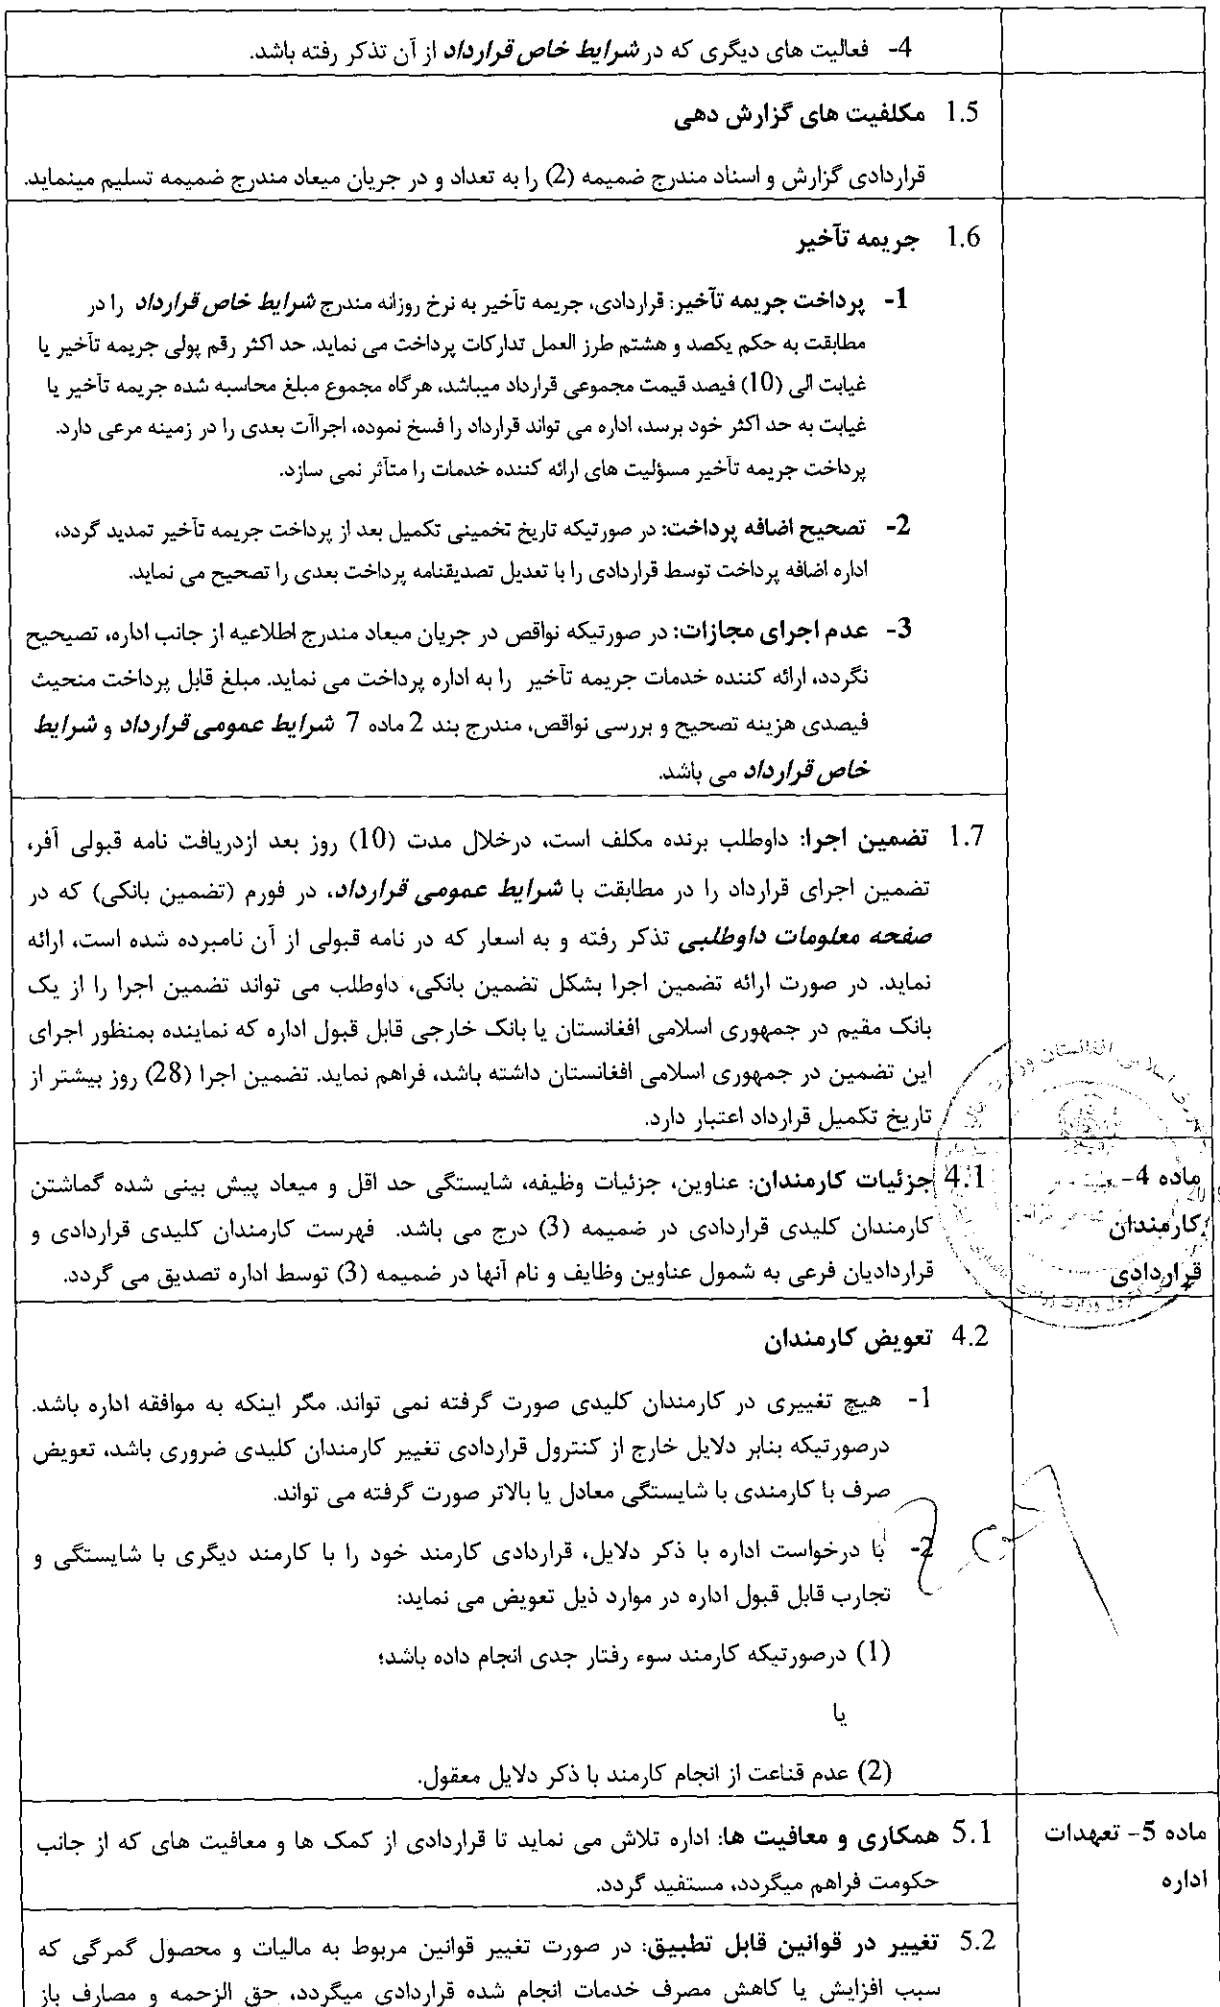 4- فعالیت های دیگری که در شرایط خاص قرارداد از آن تذکر رفته باشد.
1.5 مکلفیت های گزارش دهی
قراردادی گزارش و اسناد مندرج ضمیمه (2) را به تعداد و در جریان میعاد مندرج ضمیمه تسلیم مینماید.
1.6 جریمه تآخیر
1- پرداخت جریمه تآخیر: قراردادی، جریمه تآخیر به نرخ روزانه مندرج شرایط خاص قرارداد را در
مطابقت به حکم یکصد و هشتم طرز العمل تدارکات پرداخت می نماید. حد اکثر رقم پولی جریمه تآخیر یا
غیابت الی (10) فیصد قیمت مجموعی قرارداد میباشد، هرگاه مجموع مبلغ محاسبه شده جریمه تآخیر یا
غیابت به حد اکثر خود برسد، اداره می تواند قرارداد را فسخ نموده، اجراآت بعدی را در زمینه مرعی دارد.
پرداخت جریمه تآخیر مسؤلیت های ارائه کننده خدمات را متآثر نمی سازد.
2- تصحیح اضافه پرداخت: در صورتیکه تاریخ تخمینی تکمیل بعد از پرداخت جریمه تآخیر تمدید گردد،
اداره اضافه پرداخت توسط قراردادی را با تعدیل تصدیقنامه پرداخت بعدی را تصحیح می نماید.
3- عدم اجرای مجازات: در صورتیکه نواقص در جریان میعاد مندرج اطلاعیه از جانب اداره، تصیحیح
نگردد، ارائه کننده خدمات جریمه تآخیر را به اداره پرداخت می نماید. مبلغ قابل پرداخت منحیث
فیصدی هزینه تصحیح و بررسی نواقص، مندرج بند 2 ماده 7 شرایط عمومی قرارداد و شرایط
خاص قرارداد می باشد.
1.7 تضمین اجرا: داوطلب برنده مکلف است، درخلال مدت (10) روز بعد ازدریافت نامه قبولی آفر،
تضمین اجرای قرارداد را در مطابقت با شرایط عمومی قرارداد، در فورم (تضمین بانکی) که در
صفحه معلومات داوطلبی تذکر رفته و به اسعار که در نامه قبولی از آن نامبرده شده است، ارائه
نماید. در صورت ارائه تضمین اجرا بشکل تضمین بانکی، داوطلب می تواند تضمین اجرا را از یک
بانک مقیم در جمهوری اسلامی افغانستان یا بانک خارجی قابل قبول اداره که نماینده بمنظور اجرای
این تضمین در جمهوری اسلامی افغانستان داشته باشد، فراهم نماید. تضمین اجرا (28) روز بیشتر از
تاریخ تکمیل قرارداد اعتبار دارد.
ماده 4-
کارمندان
قراردادی
4.1 جزئیات کارمندان: عناوین، جزئیات وظیفه، شایستگی حد اقل و میعاد پیش بینی شده گماشتن
کارمندان کلیدی قراردادی در ضمیمه (3) درج می باشد. فهرست کارمندان کلیدی قراردادی و
قراردادیان فرعی به شمول عناوین وظایف و نام آنها در ضمیمه (3) توسط اداره تصدیق می گردد.
4.2 تعویض کارمندان
1- هیچ تغییری در کارمندان کلیدی صورت گرفته نمی تواند. مگر اینکه به موافقه اداره باشد.
درصورتیکه بنابر دلایل خارج از کنترول قراردادی تغییر کارمندان کلیدی ضروری باشد، تعویض
صرف با کارمندی با شایستگی معادل یا بالاتر صورت گرفته می تواند.
2- با درخواست اداره با ذکر دلایل، قراردادی کارمند خود را با کارمند دیگری با شایستگی و
تجارب قابل قبول اداره در موارد ذیل تعویض می نماید:
(1) درصورتیکه کارمند سوء رفتار جدی انجام داده باشد؛
یا
(2) عدم قناعت از انجام کارمند با ذکر دلایل معقول.
ماده 5- تعهدات
اداره
5.1 همکاری و معافیت ها: اداره تلاش می نماید تا قراردادی از کمک ها و معافیت های که از جانب
حکومت فراهم میگردد، مستفید گردد.
5.2 تغییر در قوانین قابل تطبیق: در صورت تغییر قوانین مربوط به مالیات و محصول گمرگی که
سبب افزایش یا کاهش مصرف خدمات انجام شده قراردادی میگردد، حق الزحمه و مصارف باز